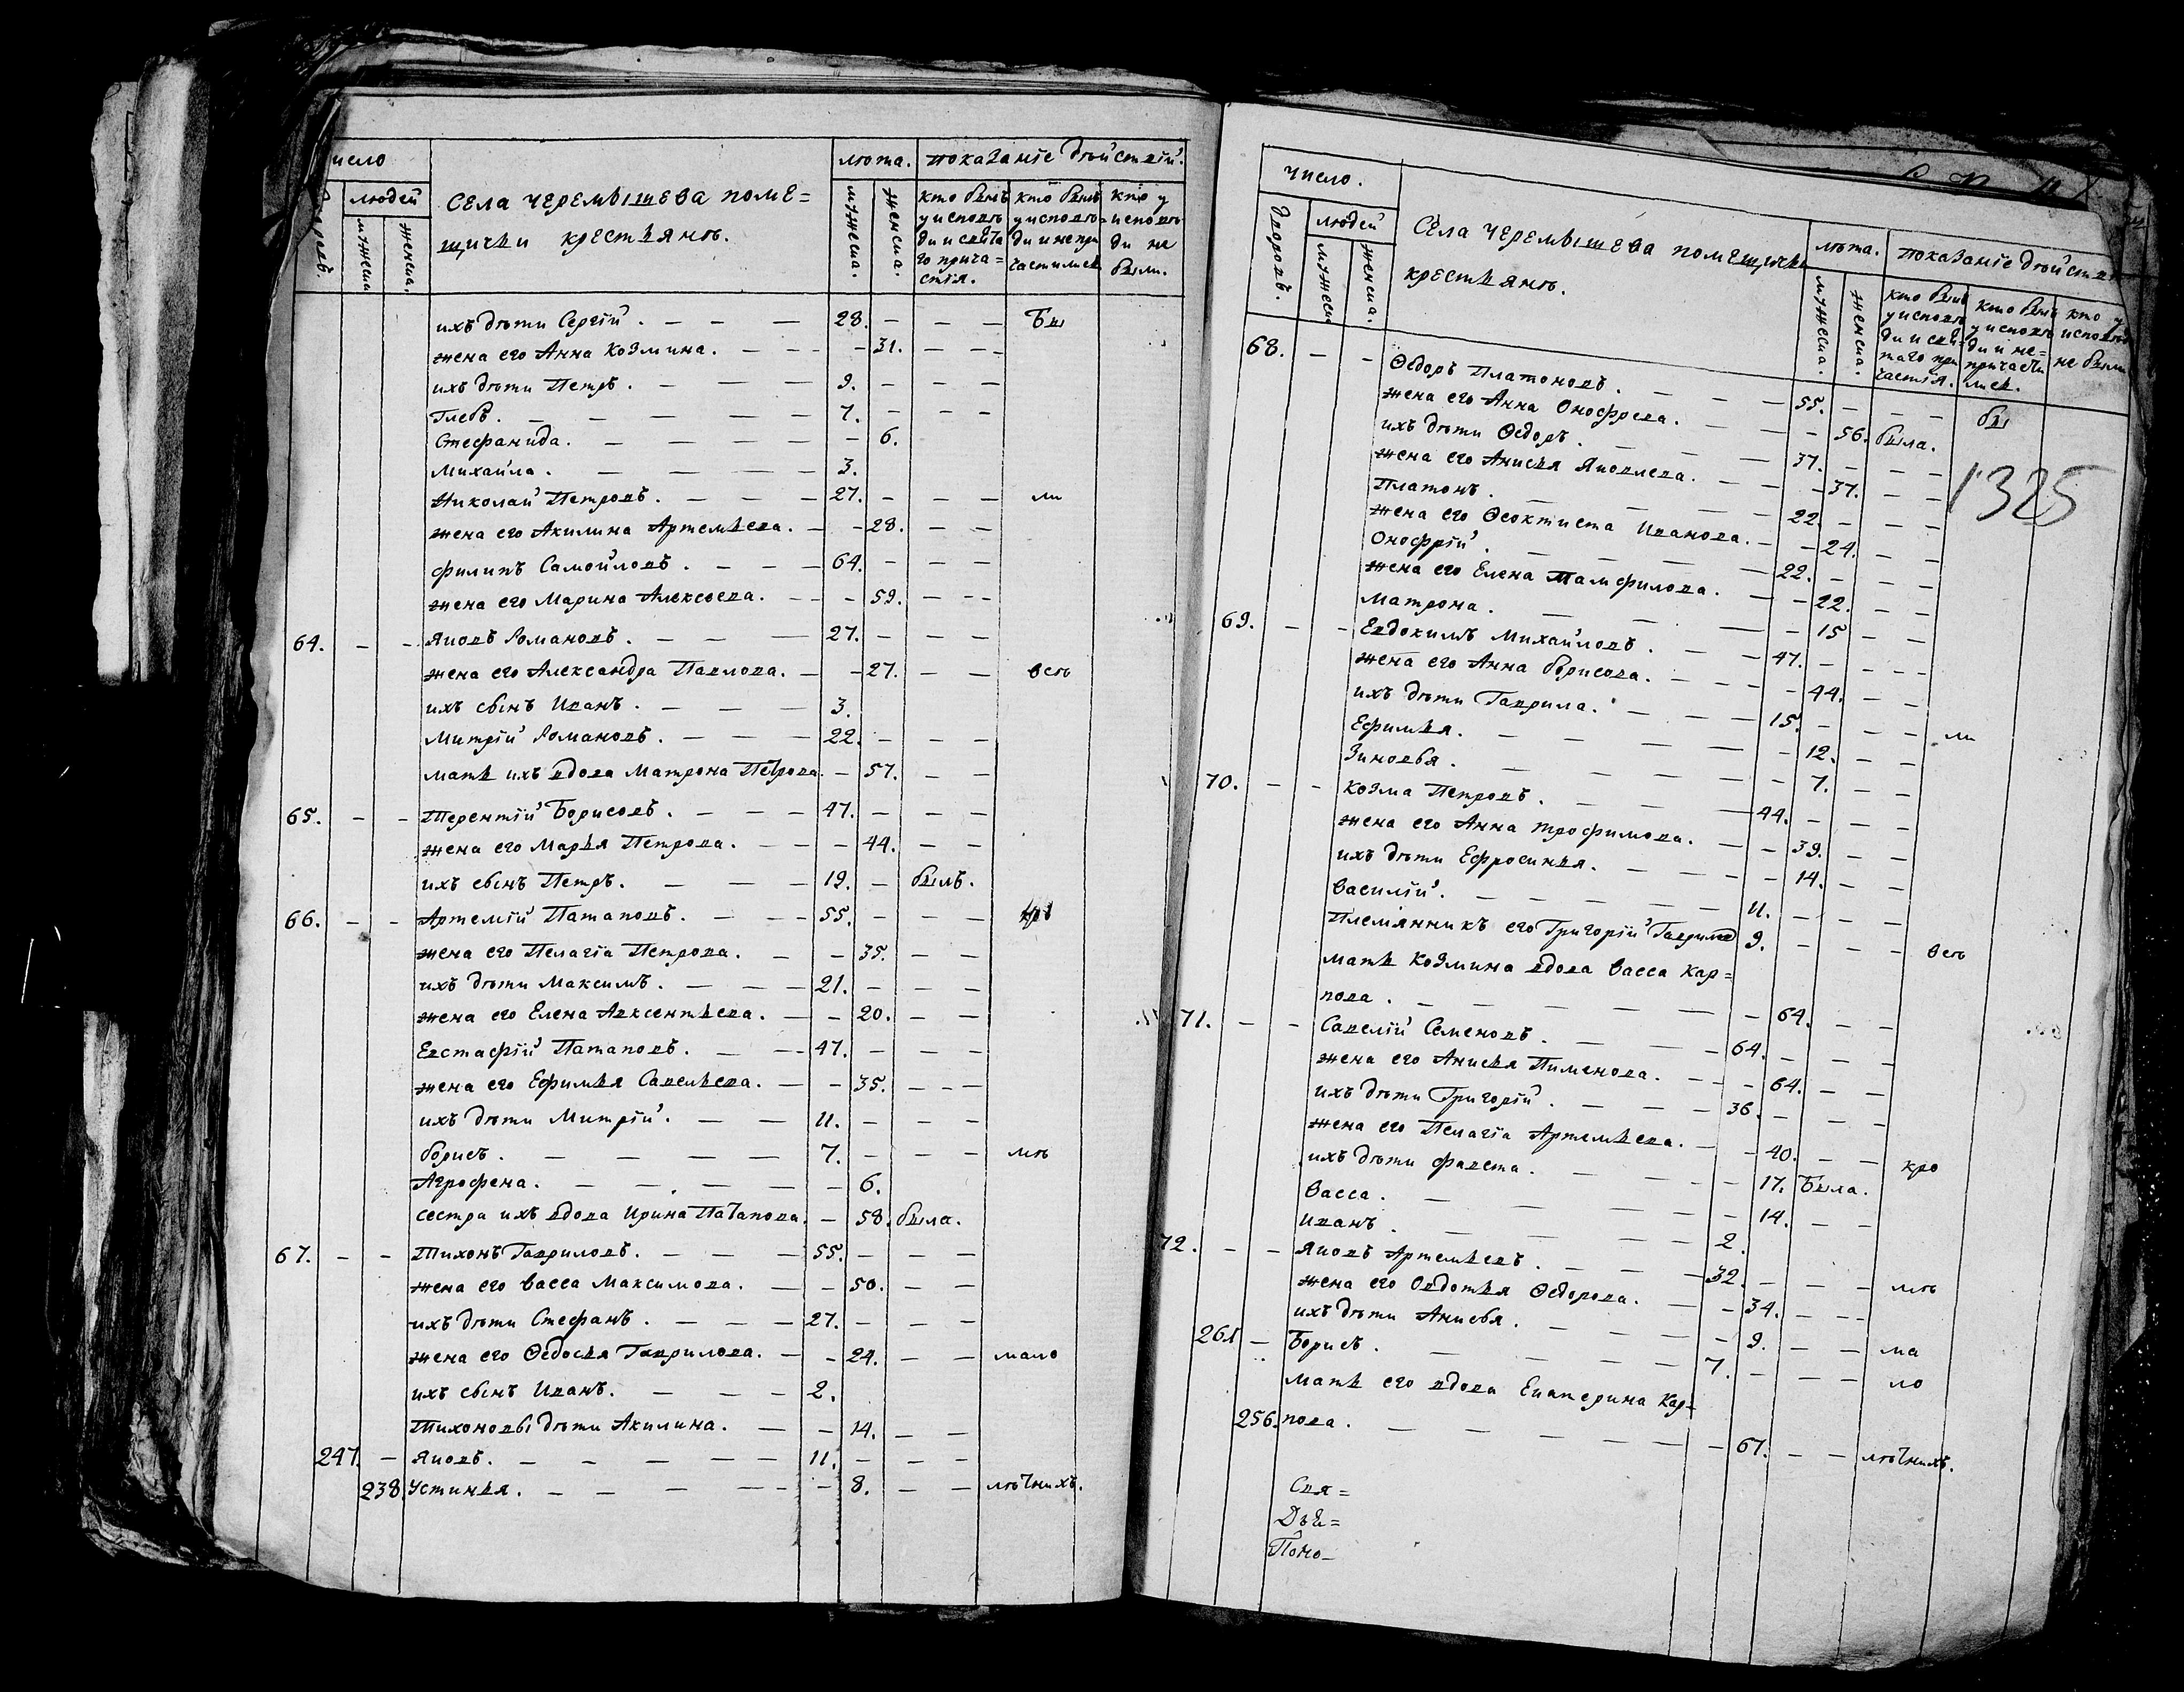 число
лѣта. показаніе дѣйствій.
людей
Села черемышева поме=
щичьи крестьянъ.
мужеска
женска.
мужеска.
женска.
кто былъ у исповѣди и святаго прича=стія.
кто былъ у исповѣ=ди и не причастились
кто у исповѣди не были.
ихъ дѣти Сергій. — — — 28. — — — Бы
жена его Анна Козмина. — — - - 31. — —
ихъ дѣти Петръ. — — — 9. — — —
Глебъ. — — — — — 7. — — —
Стефанида. — — — — — 6.
Михайла. — — — — 3.
Николай Петровъ. — — — 27. — — — ли
жена его Акилина Артемьева. — - 28. — —
филипъ Самойловъ. — — — 64. — — —
жена его Марина Алексеева. — - - 59. — —
64. — — Яковъ Романовъ. — — — 27. — — —
жена его Александра Павлова. — - 27. — — всѣ
ихъ сынъ Иванъ. — — — 3.
Митрій Романовъ. — — — 22. — — —
мать ихъ вдова Матрона Петрова. — 57. — —
65. — — Терентій Борисовъ. — — — 47. — — —
жена его Марья Петрова. — — — 44. — —
ихъ сынъ Петръ. — — — 19. — былъ.
66. — — Артемій Патаповъ. — — — 55. — — — кро
жена его Пелагія Петрова. — — 35. — —
ихъ дѣти Максимъ. — — — 21. — — —
жена его Елена Авксентьева. — — 20. — —
Евстафій Патаповъ. — — — 47. — — —
жена его Ефимья Савельева. — — 35. — — —
ихъ дѣти Митрій. — — 11. — — —
борисъ. — — — — — 7. — — — мѣ
Агрофена. — — — — — 6.
сестра ихъ вдова Ирина Патапова. — 58. была.
67. — — Тихонъ Гавриловъ. — — — 55. — — —
жена его васса Максимова. — — 50. — —
ихъ дѣти Стефанъ. — — — 27. — — —
жена его Ѳедосья Гаврилова. — — 24. — — мало
ихъ сынъ Иванъ. — — — 2.
Тихоновы дѣти Акилина. — — 14. — —
247. — Яковъ. — — — — — 11. — — —
238. Устинья. — — — — — 8. — — лѣтнихъ.
число.
лѣта. показаніе дѣйств
дворовъ.
людей
мужеска
женска.
Села черемышева помещичьи
крестьянъ.
мужеска.
женска.
кто былъ у исповѣди и свя=таго причастія.
кто былъ у исповѣди и не=причастились.
кто у исповѣди не были
68. — — Ѳедоръ Платоновъ. — — — 55. — — — бы
жена его Анна Онофрева. — — — 56. была.
ихъ дѣти Ѳедоръ. — — — 37. — — —
1325
жена его Анисья Яковлева. — — - 37. — —
Платонъ. — — — — 22. — — —
жена его Ѳеоктиста Иванова. — — 24. — —
Онофрій. — — — — 22. — — —
жена его Елена Памфилова. — — 22. — —
Матрона. — — — — 15 — —
69. — — Евдокимъ Михайловъ. — — 47. — — —
жена его Анна борисова. — — — 44. — —
ихъ дѣти Гаврила. — — — 15. — — — ли
Ефимья. — — — — — 12. — —
Зиновья. — — — — — 7. — —
70. — — Козма Петровъ. — — — 44. — — —
жена его Анна трофимова. — — 39. — —
ихъ дѣти Ефросинья. — — — 14. — —
василій. — — — — — 11. — — —
Племянникъ его Григорій Гаврилов 9. — — — всѣ
мать козмина вдова васса кар=
пова. — — — — — — 64. — —
71. — — Савелій Семеновъ. — — — 64. — — —
жена его Анисья Пименова. — — — 64. — —
ихъ дѣти Григорій. — — — 36. — — —
жена его Пелагія Артемьева. — — 40. — — кро
ихъ дѣти фавста. — — — 17. Была.
васса. — — — — — 14. — —
Иванъ. — — — — 2.
72. — — Яковъ Артемьевъ. — — — 32. — — — мѣ
жена его Овдотья Ѳедорова. — — 34. — —
ихъ дѣти Анисья. — — — — 9. — — ма
261 — Борисъ. — — — — — 7. — — — ло
мать его вдова Екатерина кар=
256. пова. — — — — — — 67. — — лѣтнихъ.
Свя=
Дье=
Поно-